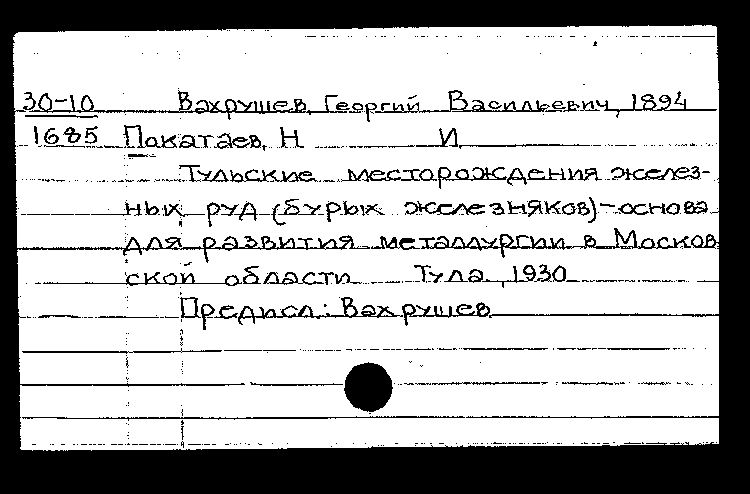 30-10 Вахрушев, Георгий Васильевич, 1894
1685 Пакатаев, Н И
Тульские месторождения желез-
ных руд (бурых железняков)-основа
для развития металлургии в Москов
ской области Тула, 1930
Предисл.: Вахрушев